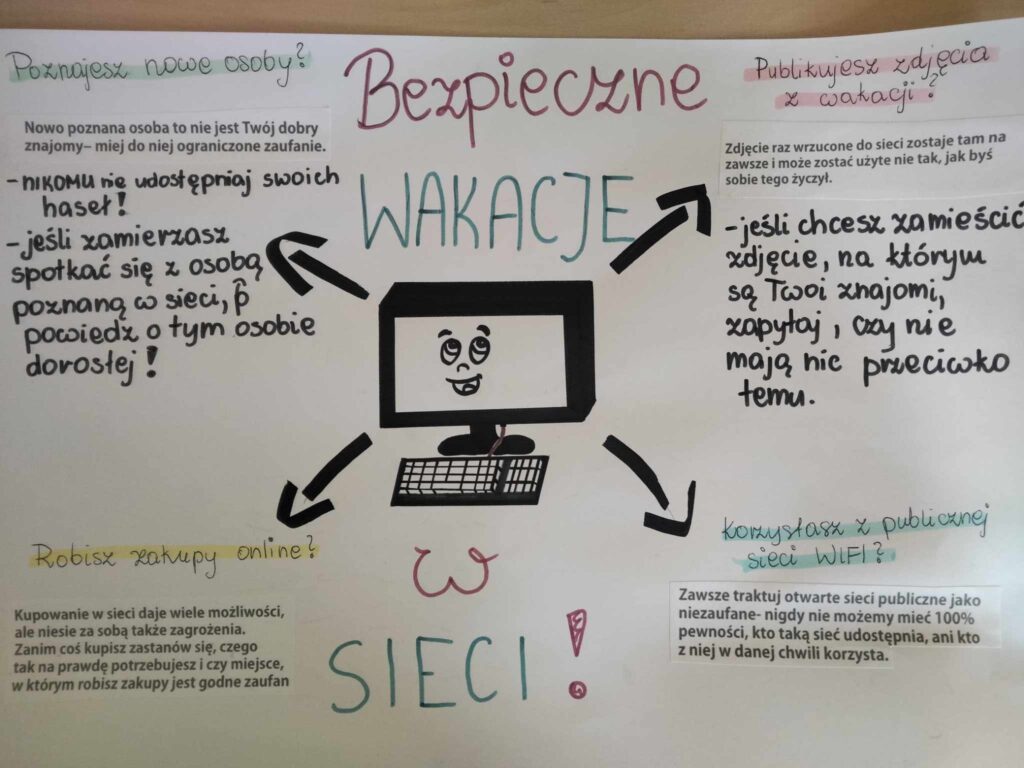 Bezpieczne
WAKACJE
w
SIECI!
Poznajesz nowe osoby?
Nowo poznana osoba to nie jest Twój dobry
znajomy– miej do niej ograniczone zaufanie.
- NIKOMU nie udostępniaj swoich
haseł!
- jeśli zamierzasz
spotkać się z osobą
poznaną w sieci, p
powiedz o tym osobie
dorosłej!
Publikujesz zdjęcia
z wakacji?
Zdjęcie raz wrzucone do sieci zostaje tam na
zawsze i może zostać użyte nie tak, jak byś
sobie tego życzył.
- jeśli chcesz zamieścić
zdjęcie, na którym
są Twoi znajomi,
zapytaj, czy nie
mają nic przeciwko
temu.
Robisz zakupy online?
Kupowanie w sieci daje wiele możliwości,
ale niesie za sobą także zagrożenia.
Zanim coś kupisz zastanów się, czego
tak na prawdę potrzebujesz i czy miejsce,
w którym robisz zakupy jest godne zaufan
Korzystasz z publicznej
sieci WIFI?
Zawsze traktuj otwarte sieci publiczne jako
niezaufane- nigdy nie możemy mieć 100%
pewności, kto taką sieć udostępnia, ani kto
z niej w danej chwili korzysta.